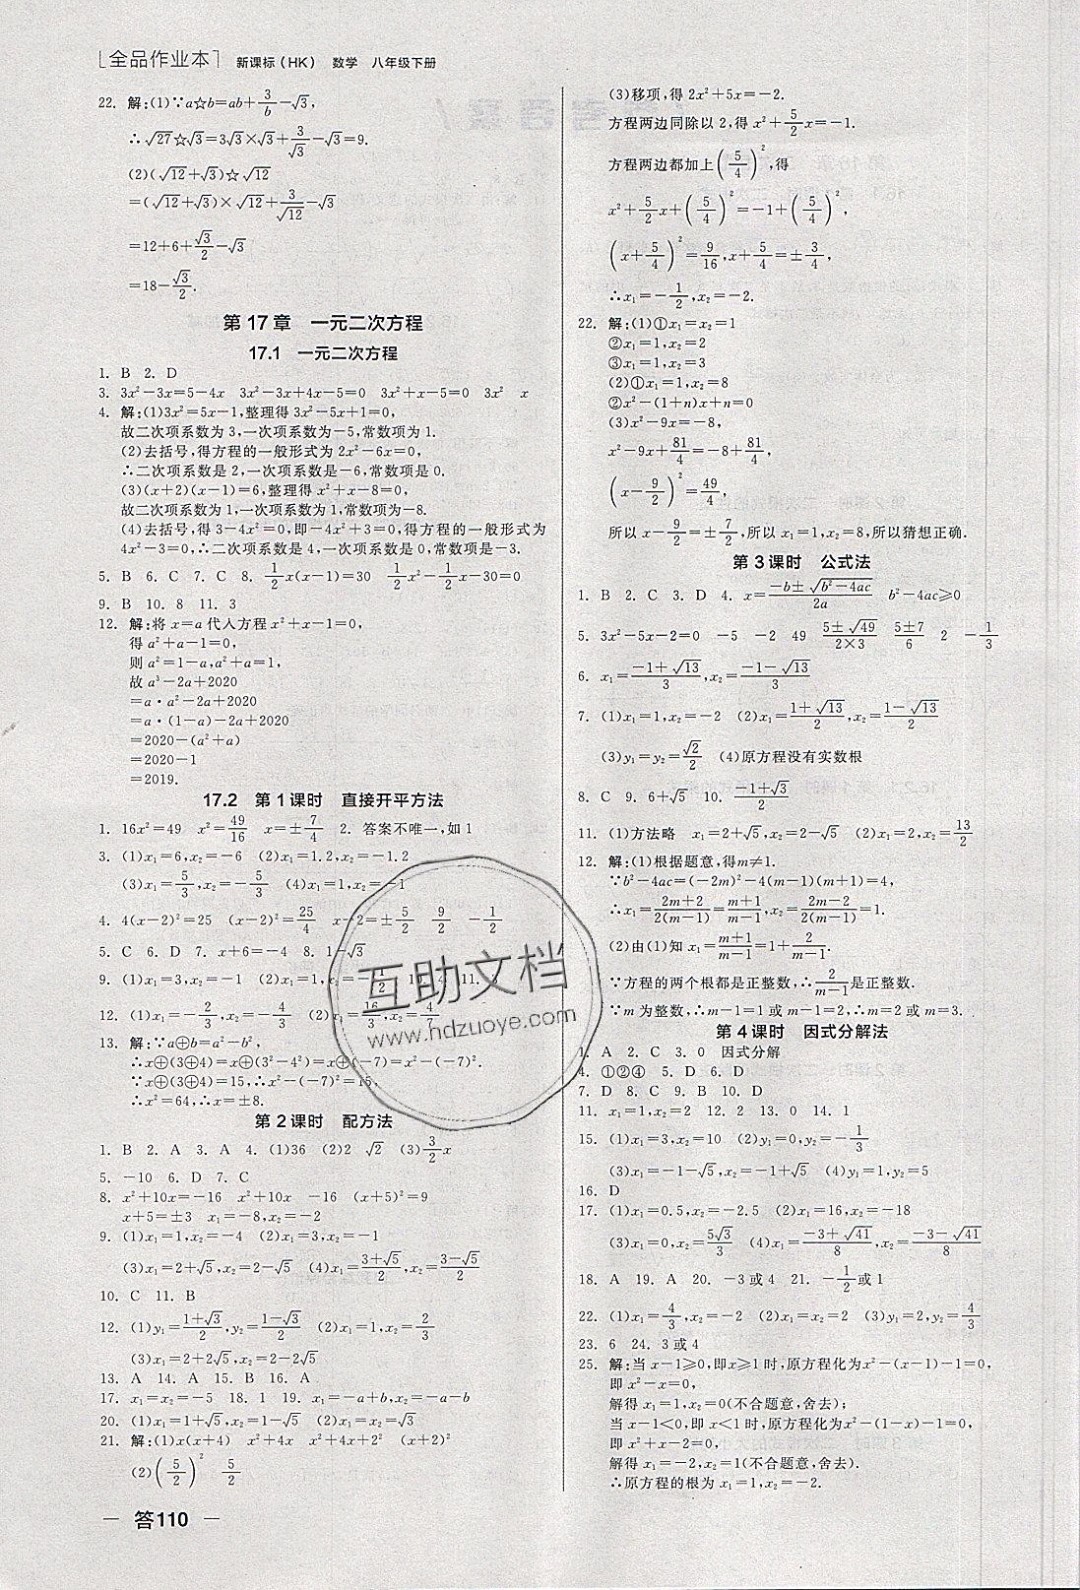 [全品作业本] 新课标(HK) 数学 八年级下册
22. 解:(1)∵a☆b=ab+3/b-√3,
∴√27☆√3=3√3×√3+3/√3-√3=9.
(2)(√12+√3)☆√12
=(√12+√3)×√12+3/√12-√3
=12+6+√3/2-√3
=18-√3/2.
第17章 一元二次方程
17.1 一元二次方程
1. B 2. D
3. 3x²-3x=5-4x 3x²-3x+4x-5=0 3x²+x-5=0 3x² x
4. 解:(1)3x²=5x-1,整理得3x²-5x+1=0,
故二次项系数为3,一次项系数为-5,常数项为1.
(2)去括号,得方程的一般形式为2x²-6x=0,
∴二次项系数是2,一次项系数是-6,常数项是0.
(3)(x+2)(x-1)=6,整理得x²+x-8=0,
故二次项系数为1,一次项系数为1,常数项为-8.
(4)去括号,得3-4x²=0,即-4x²+3=0,得方程的一般形式为
4x²-3=0,∴二次项系数是4,一次项系数是0,常数项是-3.
5. B 6. C 7. C 8. 1/2x(x-1)=30 1/2x²-1/2x-30=0
9. B 10. 8 11. 3
12. 解:将x=a代入方程x²+x-1=0,
得a²+a-1=0,
则a²=1-a,a²+a=1,
故a³-2a+2020
=a·a²-2a+2020
=a·(1-a)-2a+2020
=2020-(a²+a)
=2020-1
=2019.
17.2 第1课时 直接开平方法
1. 16x²=49 x²=49/16 x=±7/4 2. 答案不唯一,如1
3. (1)x₁=6,x₂=-6 (2)x₁=1.2,x₂=-1.2
(3)x₁=5/3,x₂=-5/3 (4)x₁=1,x₂=-1
4. 4(x-2)²=25 (x-2)²=25/4 x-2=±5/2 9/2 -1/2
5. C 6. D 7. x+6=-4 8. 1-√3
9. (1)x₁=3,x₂=-1 (2)x₁=1,x₂=-1/2 10. 4 11. 3
12. (1)x₁=-2/3,x₂=-4/3 (2)x₁=16/3,x₂=4/7
13. 解:∵a⊕b=a²-b²,
∴x⊕(3⊕4)=x⊕(3²-4²)=x⊕(-7)=x²-(-7)².
∵x⊕(3⊕4)=15,∴x²-(-7)²=15,
∴x²=64,∴x=±8.
第2课时 配方法
1. B 2. A 3. A 4. (1)36 (2)2 √2 (3)3/2x
5. -10 6. D 7. C
8. x²+10x=-16 x²+10x -16 (x+5)²=9
x+5=±3 x₁=-8,x₂=-2
9. (1)x₁=1,x₂=-4 (2)x₁=3,x₂=-1
(3)x₁=2+√5,x₂=2-√5 (4)x₁=(3+√5)/2,x₂=(3-√5)/2
10. C 11. B
12. (1)y₁=(1+√3)/2,y₂=(1-√3)/2 (2)x₁=1,x₂=2/3
(3)x₁=2+2√5,x₂=2-2√5
13. A 14. A 15. B 16. A
17. x₁=x₂=-5 18. 1 19. x₁=-a+b,x₂=-a-b
20. (1)x₁=1+√5,x₂=1-√5 (2)x₁=1,x₂=-3
21. 解:(1)x(x+4) x²+4x x²+4x+2² (x+2)²
(2)(5/2)² 5/2
— 答110 —
(3)移项,得2x²+5x=-2.
方程两边同除以2,得x²+5/2x=-1.
方程两边都加上(5/4)²,得
x²+5/2x+(5/4)²=-1+(5/4)²,
(x+5/4)²=9/16,x+5/4=±3/4,
∴x₁=-1/2,x₂=-2.
22. 解:(1)①x₁=x₂=1
②x₁=1,x₂=2
③x₁=1,x₂=3
(2)①x₁=1,x₂=8
②x²-(1+n)x+n=0
(3)x²-9x=-8,
x²-9x+81/4=-8+81/4,
(x-9/2)²=49/4,
所以x-9/2=±7/2,所以x₁=1,x₂=8,所以猜想正确.
第3课时 公式法
1. B 2. C 3. D 4. x=(-b±√(b²-4ac))/2a b²-4ac≥0
5. 3x²-5x-2=0 -5 -2 49 (5±√49)/(2×3) (5±7)/6 2 -1/3
6. x₁=(-1+√13)/3,x₂=(-1-√13)/3
7. (1)x₁=1,x₂=-2 (2)x₁=(1+√13)/2,x₂=(1-√13)/2
(3)y₁=y₂=√2/2 (4)原方程没有实数根
8. C 9. 6+√5 10. (-1+√3)/2
11. (1)方法略 x₁=2+√5,x₂=2-√5 (2)x₁=2,x₂=13/2
12. 解:(1)根据题意,得m≠1.
∵b²-4ac=(-2m)²-4(m-1)(m+1)=4,
∴x₁=(2m+2)/2(m-1)=(m+1)/(m-1),x₂=(2m-2)/2(m-1)=1.
(2)由(1)知x₁=(m+1)/(m-1)=1+2/(m-1).
∵方程的两个根都是正整数,∴2/(m-1)是正整数.
∵m为整数,∴m-1=1或m-1=2,∴m=2或m=3.
第4课时 因式分解法
1. A 2. C 3. 0 因式分解
4. ①②④ 5. D 6. D
7. D 8. C 9. B 10. D
11. x₁=1,x₂=2 12. 2 13. 0 14. 1
15. (1)x₁=3,x₂=10 (2)y₁=0,y₂=-1/3
(3)x₁=-1-√5,x₂=-1+√5 (4)y₁=1,y₂=5
16. D
17. (1)x₁=0.5,x₂=-2.5 (2)x₁=16,x₂=-18
(3)x₁=0,x₂=5√3/3 (4)x₁=(-3+√41)/8,x₂=(-3-√41)/8
18. A 19. A 20. -3或4 21. -1/2或1
22. (1)x₁=4/3,x₂=-2 (2)x₁=x₂=2 (3)y₁=2,y₂=4/3
23. 6 24. 3或4
25. 解:当x-1≥0,即x≥1时,原方程化为x²-(x-1)-1=0,
即x²-x=0,
解得x₁=1,x₂=0(不合题意,舍去);
当x-1<0,即x<1时,原方程化为x²+(x-1)-1=0,
即x²+x-2=0,
解得x₁=-2,x₂=1(不合题意,舍去).
∴原方程的根为x₁=1,x₂=-2.
互助文档
www.hdzuoye.com